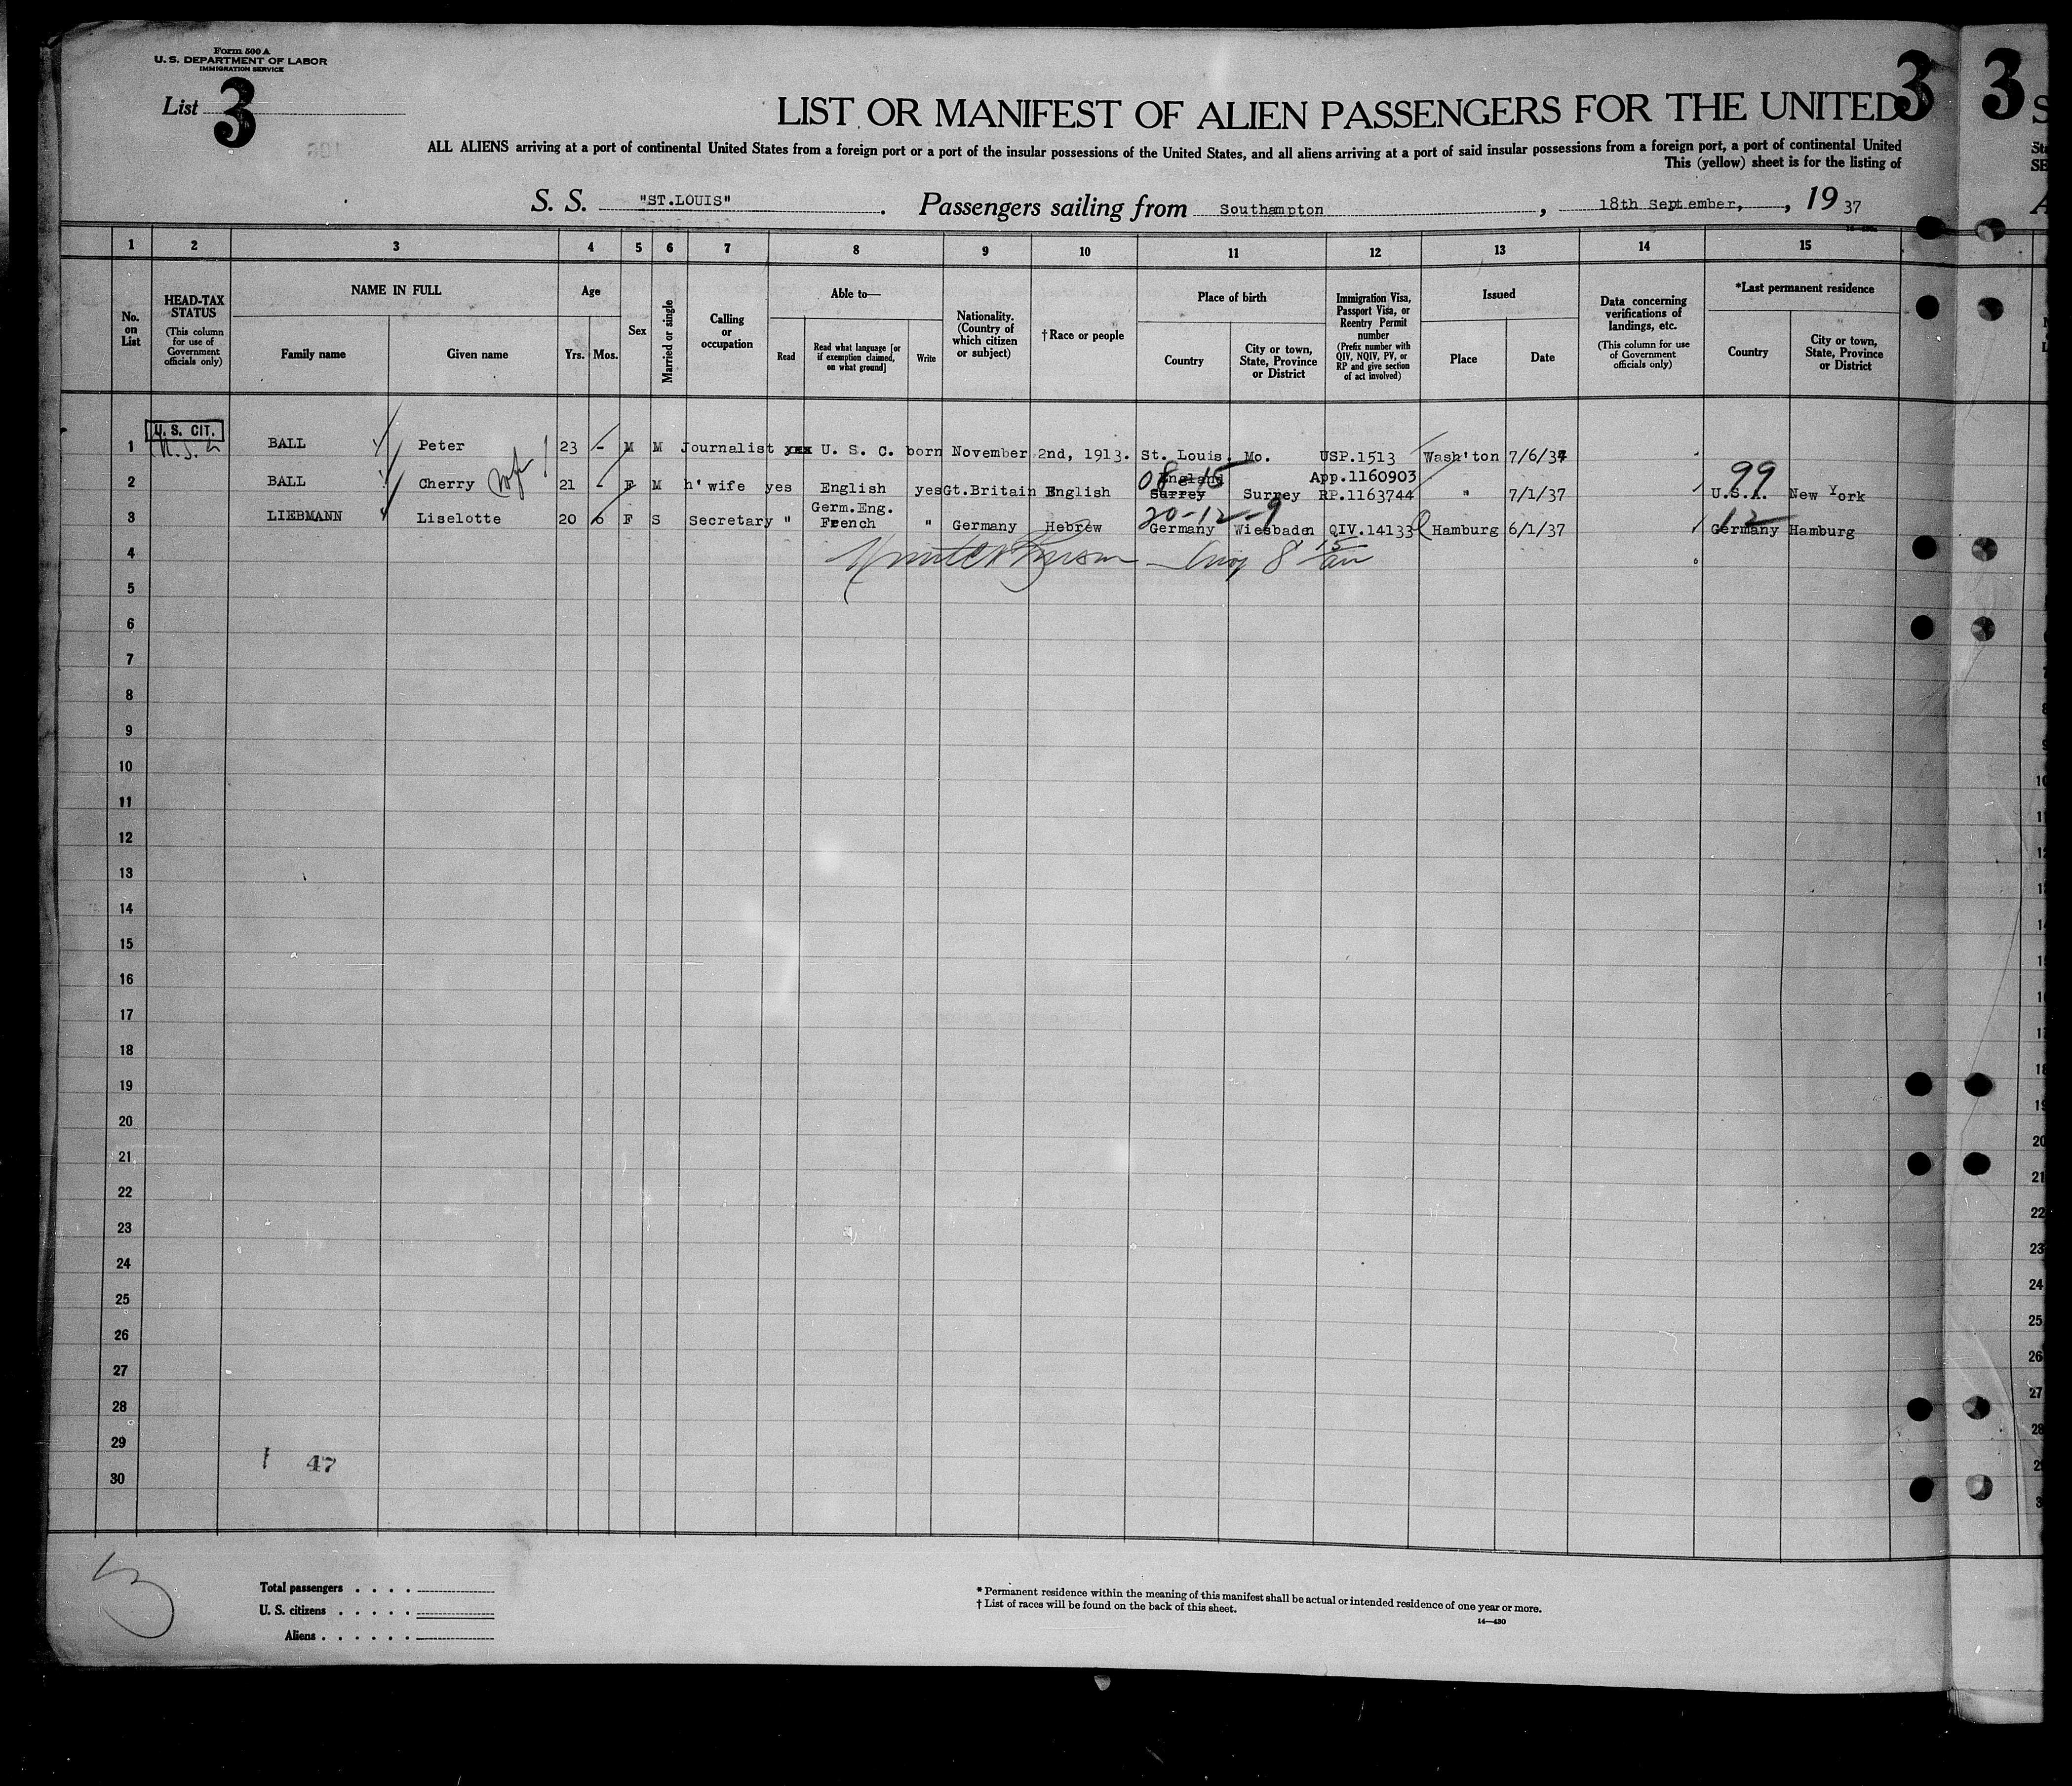 Form 500 A
U. S. DEPARTMENT OF LABOR
IMMIGRATION SERVICE
List 3
3
3
LIST OR MANIFEST OF ALIEN PASSENGERS FOR THE UNITED
ALL ALIENS arriving at a port of continental United States from a foreign port or a port of the insular possessions of the United States, and all aliens arriving at a port of said insular possessions from a foreign port, a port of continental United
This (yellow) sheet is for the listing of
S. S. "ST.LOUIS". Passengers sailing from Southampton, 18th September, , 19 37
1 2 3 4 5 6 7 8 9 10 11 12 13 14 15
No. on List
HEAD-TAX STATUS
(This column for use of Government officials only)
NAME IN FULL
Family name
Given name
Age
Yrs. Mos.
Sex
Married or single
Calling or occupation
Able to—
Read
Read what language [or if exemption claimed, on what ground]
Write
Nationality. (Country of which citizen or subject)
†Race or people
Place of birth
Country
City or town, State, Province or District
Immigration Visa, Passport Visa, or Reentry Permit number
(Prefix number with QIV, NQIV, PV, or RP and give section of act involved)
Issued
Place
Date
Data concerning verifications of landings, etc.
(This column for use of Government officials only)
*Last permanent residence
Country
City or town, State, Province or District
U. S. CIT.
1 BALL Peter 23 - M M Journalist yes U. S. C. born November 2nd, 1913. St. Louis, Mo. USP.1513 Wash'ton 7/6/37
08 15 England App.1160903 99
2 BALL Cherry wife 21 - F M h'wife yes English yes Gt.Britain English Surrey Surrey RP.1163744 " 7/1/37 U.S.A. New York
Germ.Eng. 20-12-9 12
3 LIEBMANN Liselotte 20 6 F S Secretary " French " Germany Hebrew Germany Wiesbaden QIV.14133 Hamburg 6/1/37 Germany Hamburg
4
5
6
7
8
9
10
11
12
13
14
15
16
17
18
19
20
21
22
23
24
25
26
27
28
29
30
47
3
Total passengers . . . .
U. S. citizens . . . . .
Aliens . . . . . .
* Permanent residence within the meaning of this manifest shall be actual or intended residence of one year or more.
† List of races will be found on the back of this sheet.
14—430